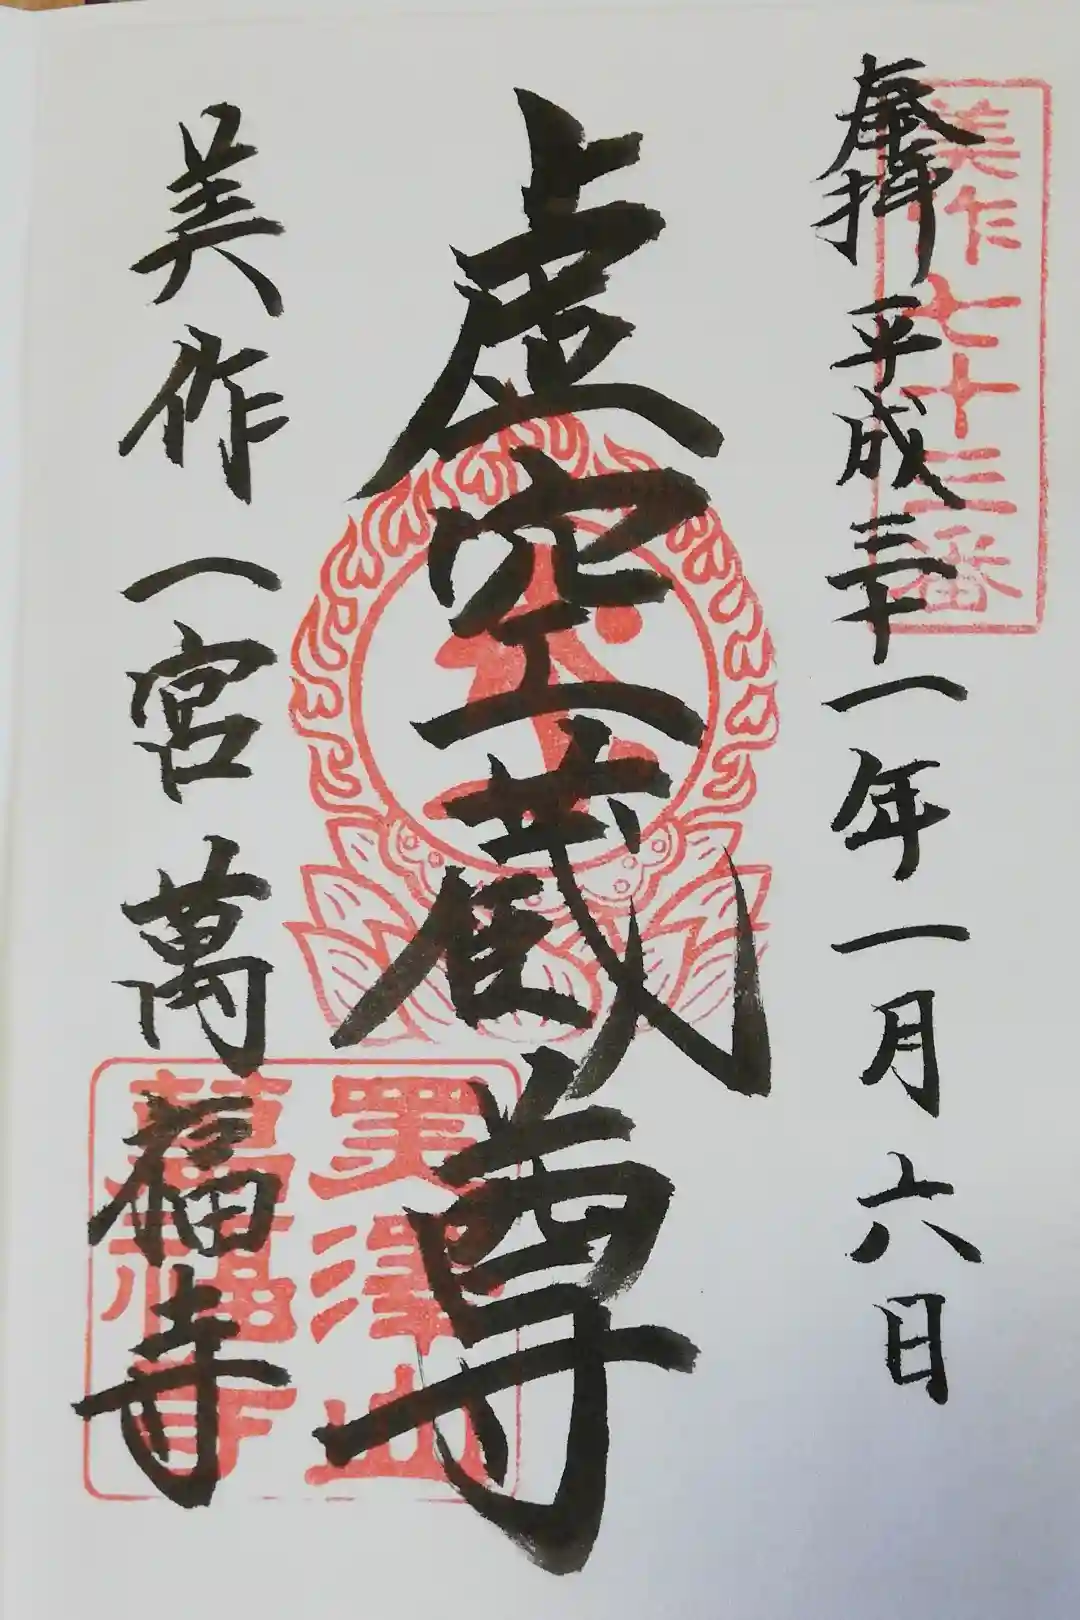 奉拝 平成三十一年一月六日
美作七十三番
虚空蔵尊
美作一宮萬福寺
萬福寺